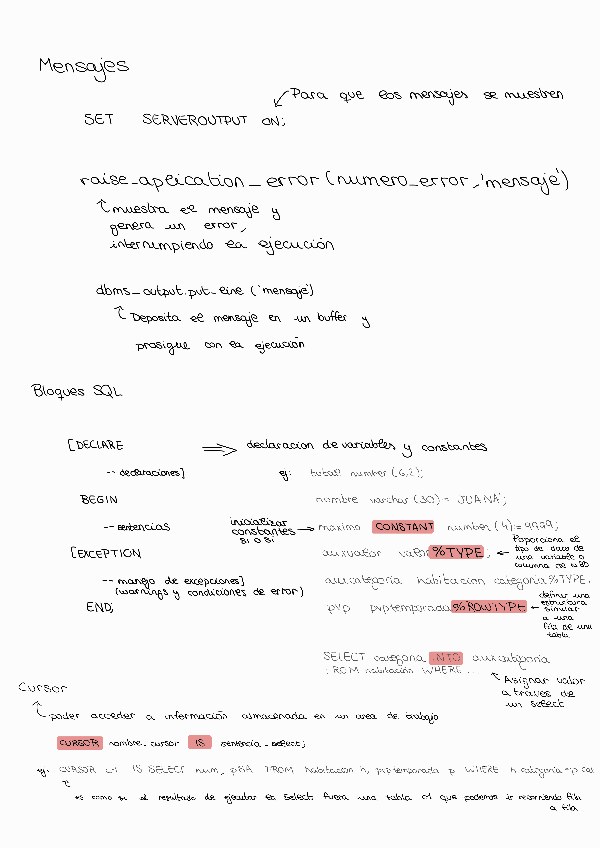 Mensajes
Para que los mensajes se muestren
SET SERVEROUTPUT ON;
raise_aplication_error (numero_error,'mensaje')
muestra el mensaje y
genera un error,
interrumpiendo la ejecución
dbms_output.put_line ('mensaje')
Deposita el mensaje en un buffer y
prosigue con la ejecución
Bloques SQL
[DECLARE ⇒ declaracion de variables y constantes
-- declaraciones] ej: total number (6,2);
BEGIN nombre varchar (30) = 'JUANA';
-- sentencias inicializar constantes si o si → maximo CONSTANT number (4):= 9999;
[EXCEPTION auxvalor valor%TYPE; ← Poporciona el
tipo de dato de
una variable o
columna de la BD
-- manejo de excepciones] auxcategoria habitacion categoria%TYPE.
(warnings y condiciones de error)
END; pvp pvptemporada%ROWTYPE ← definir una
estructura
similar
a una
fila de una
tabla.
SELECT categoria INTO auxcategoria
FROM habitación WHERE...
Asignar valor
a través de
un select
Cursor
poder acceder a información almacenada en un area de trabajo
CURSOR nombre_cursor IS sentencia_select;
ej. CURSOR c1 IS SELECT num, psa FROM habitacion h, pvptemporada p WHERE h.categoria=p.cat
es como si el resultado de ejecutar el Select fuera una tabla c1 que podemos ir recorriendo fila
a fila